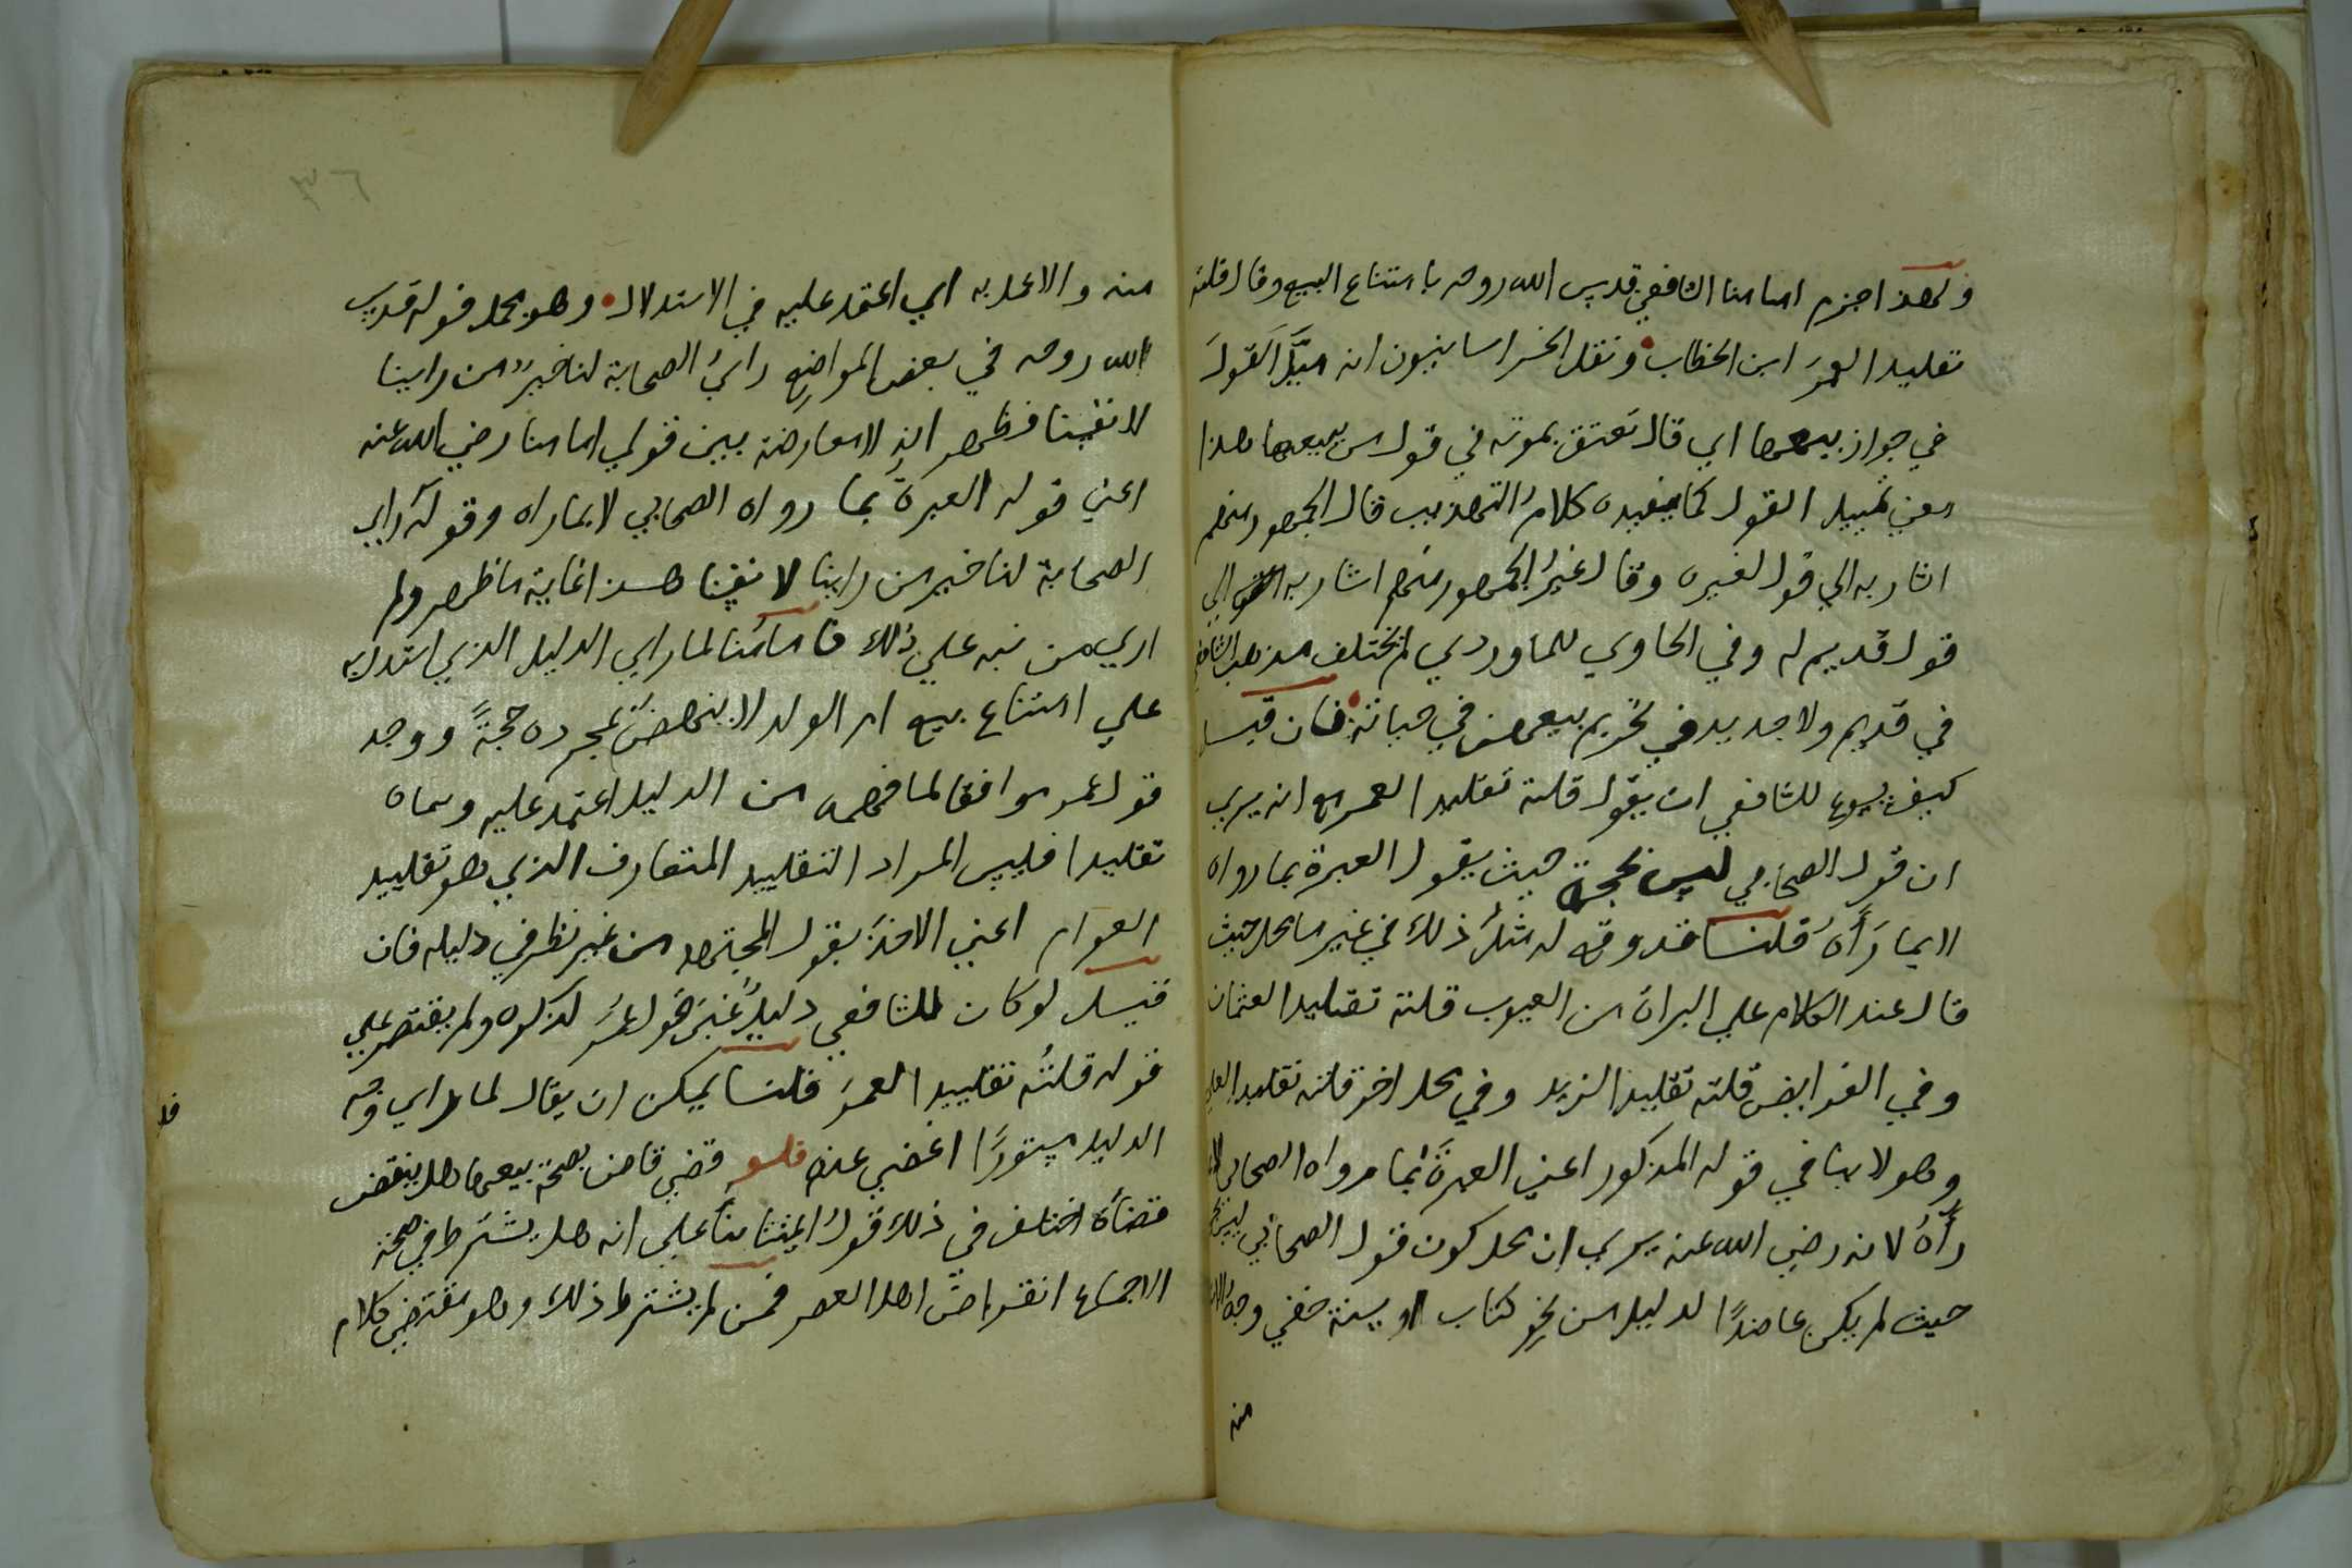 ولهذا جزم امامنا الشافعي قدس الله روحه بامتناع البيع وقال قلته
تقليدا لعمرَ ابن الخطاب ونقل الخراسانيون انه ميّل القولَ
في جواز بيعها اي قال تعتق بموته في قول من يبيعها هذا
معني تمييل القول كما يفيده كلامُ التهذيب قال الجمهور منهم
اشار به الي قول لغيره وقال غيرُ الجمهور منهم اشار به الي
قول قديم له وفي الحاوي للماوردي لم يختلف مذهب الشافعي
في قديم ولا جديد في تحريم بيعهن في حياته فان قيل
كيف يسوغ للشافعي ان يقول قلته تقليدا لعمر مع انه يري
ان قول الصحابي ليس بحجة حيث يقول العبرة بما رواه
لا بما رَأَهُ قلنا قد وقع له مثلُ ذلك في غير ما محل حيث
قال عند الكلام علي البراة من العيوب قلته تقليدا لعثمان
وفي الفرايض قلته تقليدا لزيد وفي محل اخر قلته تقليدا لعلي
وهو لا ينافي قوله المذكور اعني العبرةَ بما رواه الصحابي لا بما
رأهُ لانه رضي الله عنه يري ان محل كون قول الصحابي ليس بحجة
حيث لم يكن عاضدًا لدليل من نحو كتاب او سنة خفي وجه الدلالة
منه
٣٦
منه والا عمل به اي اعتمد عليه في الاستدلال وهو محمل قوله قدس
الله روحه في بعض المواضع رايُ الصحابة لنا خيرٌ من راينا
لانفسنا فظهر ان لا معارضة بين قولي امامنا رضي الله عنه
اعني قوله العبرةُ بما رواه الصحابي لا بما راه وقوله راي
الصحابة لنا خير من راينا لانفسنا هذا غاية ما ظهر ولم
اري من نبه علي ذلك فامامُنا لما راي الدليل الذي استدل به
علي امتناع بيع ام الولد لا ينهض بمجرده حجةً ووجد
قول عمر موافقا لما فهمه من الدليل اعتمد عليه وسماه
تقليدا فليس المراد التقليد المتعارف الذي هو تقليد
العوام اعني الاخذَ بقول المجتهد من غير نظر في دليله فان
قيل لو كان للشافعي دليلٌ غيرَ قول عمرَ لذكره ولم يقتصر علي
قوله قلتُه تقليدا لعمرَ قلنا يمكن ان يقال لما راي وجه
الدليل مستورًا اغضي عنه فلو قضي قاض بصحة بيعها هل ينقض
قضاهُ اختلف في ذلك قولُ ايمتنا بناً علي انه هل يشترط في صحة
الاجماع انقراضُ اهل العصر فمن لم يشترط ذلك وهو مقتضي كلام